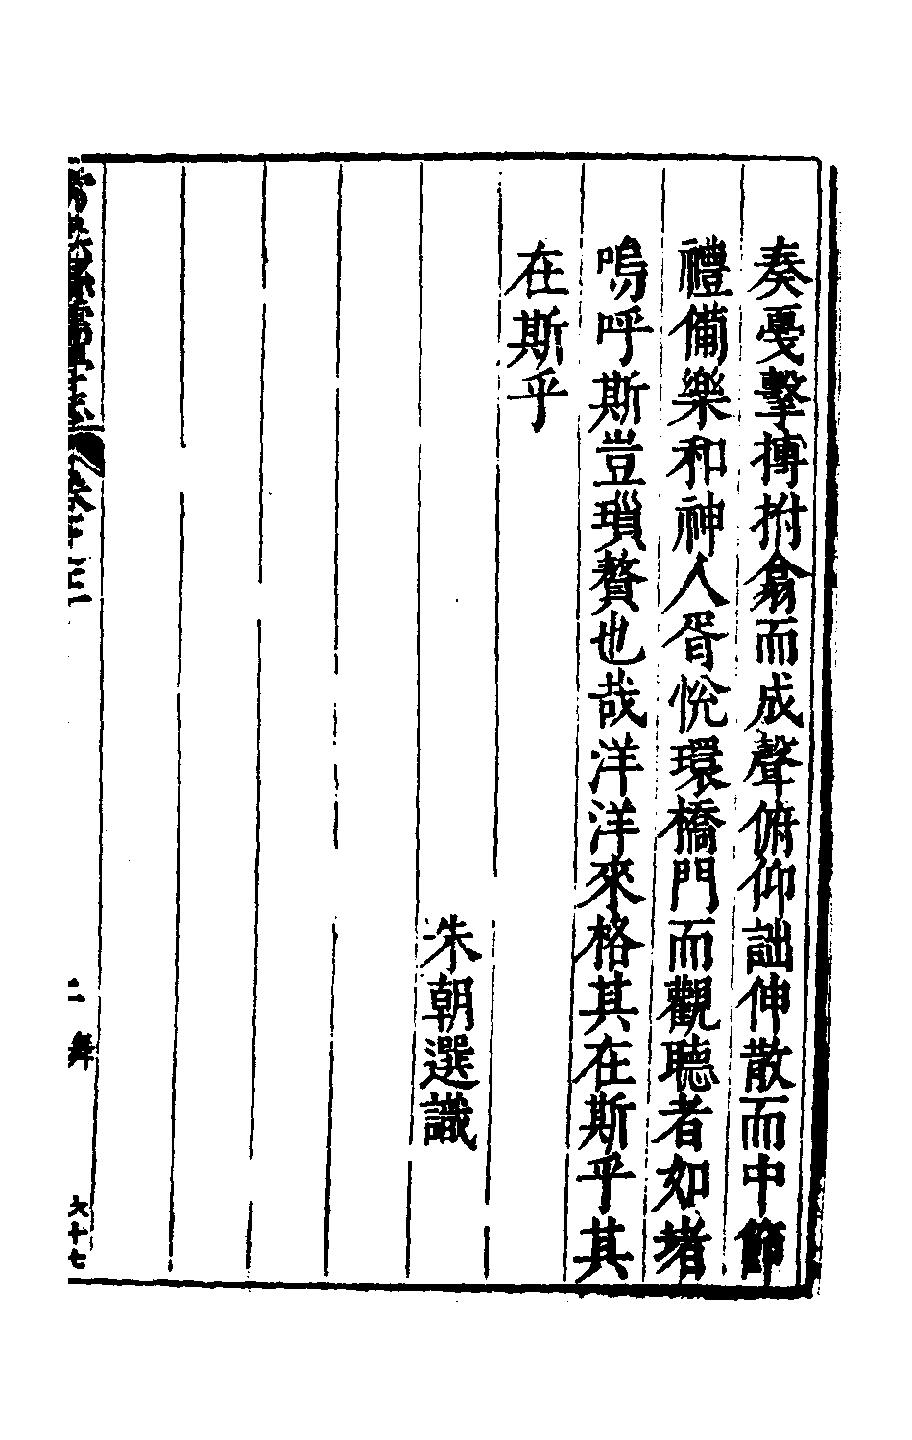 奏戞擊搏拊翕而成聲俯仰詘伸散而中節
禮備樂和神人胥悅環橋門而觀聽者如堵
嗚呼斯豈瑣贅也哉洋洋來格其在斯乎其
在斯乎
朱朝選識
二舞
六十七